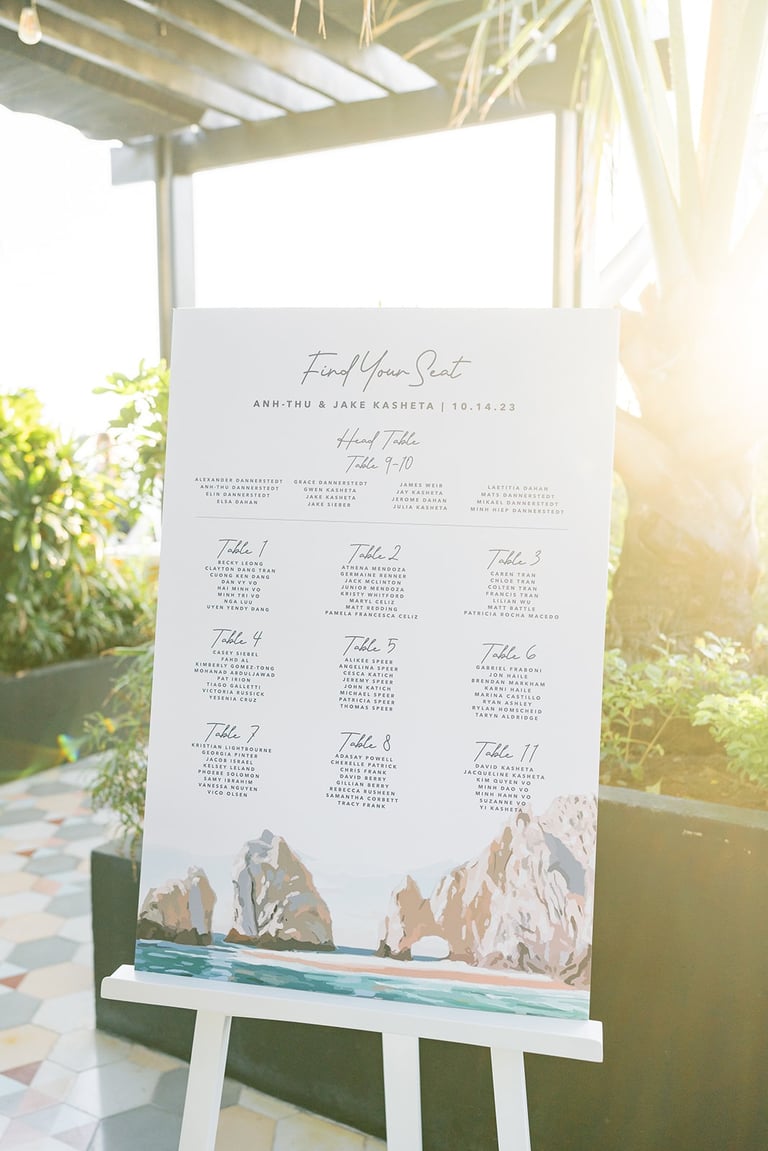 Find Your Seat
ANH-THU & JAKE KASHETA | 10.14.23
Head Table
Table 9-10
ALEXANDER DANNERSTEDT
ANH-THU DANNERSTEDT
ELIN DANNERSTEDT
ELSA DAHAN
GRACE DANNERSTEDT
GWEN KASHETA
JAKE KASHETA
JAKE SIEBER
JAMES WEIR
JAY KASHETA
JEROME DAHAN
JULIA KASHETA
LAETITIA DAHAN
MATS DANNERSTEDT
MIKAEL DANNERSTEDT
MINH HIEP DANNERSTEDT
Table 1
BECKY LEONG
CLAYTON DANG TRAN
CUONG KEN DANG
DAN VY VO
HAI MINH VO
MINH TRI VO
NGA LUU
UYEN YENDY DANG
Table 2
ATHENA MENDOZA
GERMAINE RENNER
JACK MCLINTON
JUNIOR MENDOZA
KRISTY WHITFORD
MARYL CELIZ
MATT REDDING
PAMELA FRANCESCA CELIZ
Table 3
CAREN TRAN
CHLOE TRAN
COLTEN TRAN
FRANCIS TRAN
LILIAN WU
MATT BATTLE
PATRICIA ROCHA MACEDO
Table 4
CASEY SIEBEL
FAHD AL
KIMBERLY GOMEZ-TONG
MOHANAD ABDULJAWAD
PAT IRION
TIAGO GALLETTI
VICTORIA RUSSICK
YESENIA CRUZ
Table 5
ALIKEE SPEER
ANGELINA SPEER
CESCA KATICH
JEREMY SPEER
JOHN KATICH
MICHAEL SPEER
PATRICIA SPEER
THOMAS SPEER
Table 6
GABRIEL FRABONI
JON HAILE
BRENDAN MARKHAM
KARNI HAILE
MARINA CASTILLO
RYAN ASHLEY
RYLAN HOMSCHEID
TARYN ALDRIDGE
Table 7
KRISTIAN LIGHTBOURNE
GEORGIA PINTER
JACOB ISRAEL
KELSEY LELAND
PHOEBE SOLOMON
SAMY IBRAHIM
VANESSA NGUYEN
VICO OLSEN
Table 8
ADASAY POWELL
CHERELLE PATRICK
CHRIS FRANK
DAVID BERRY
GILLIAN BERRY
REBECCA RUSHEEN
SAMANTHA CORBETT
TRACY FRANK
Table 11
DAVID KASHETA
JACQUELINE KASHETA
KIM QUYEN VO
MINH DAO VO
MINH HANH VO
SUZANNE VO
YI KASHETA